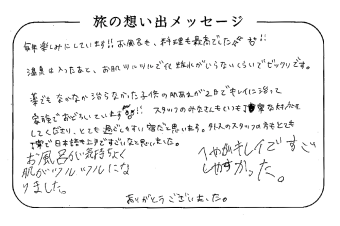 旅の想い出メッセージ
毎年楽しみにしています!!お風呂も、料理も最高でした!!
温泉は入ったあと、お肌ツルツルで化粧水がいらないくらいでビックリです。
薬でもなかなか治らなかった子供の肌あれが2日でキレイに治って
家族でおどろいています!! スタッフのみなさんもいつも丁寧な対応
してくださり、とても過ごしやすい宿だと思います。外人のスタッフの方もとても
丁寧で日本語も上手ですごいなと思いました。
お風呂が気持ちよく
肌がツルツルにな
りました。
へやがキレイですご
しやすかった。
ありがとうございました。